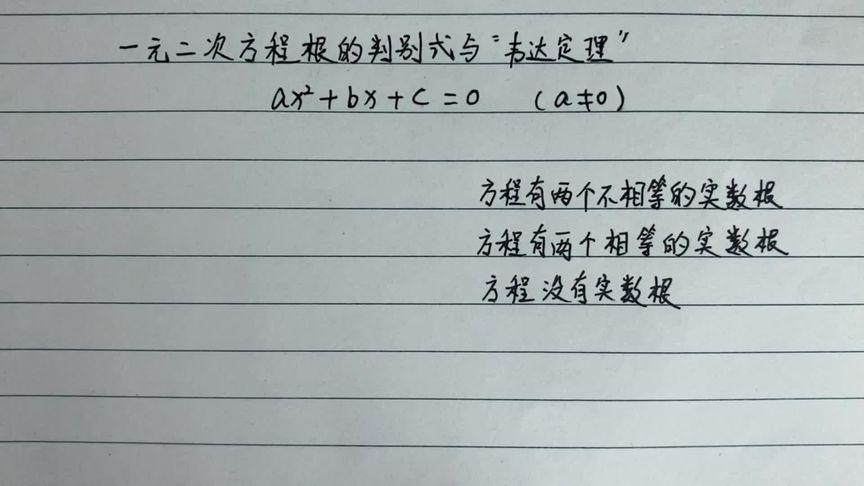 一元二次方程根的判别式与“韦达定理”
ax²+bx+c=0 (a≠0)
方程有两个不相等的实数根
方程有两个相等的实数根
方程没有实数根